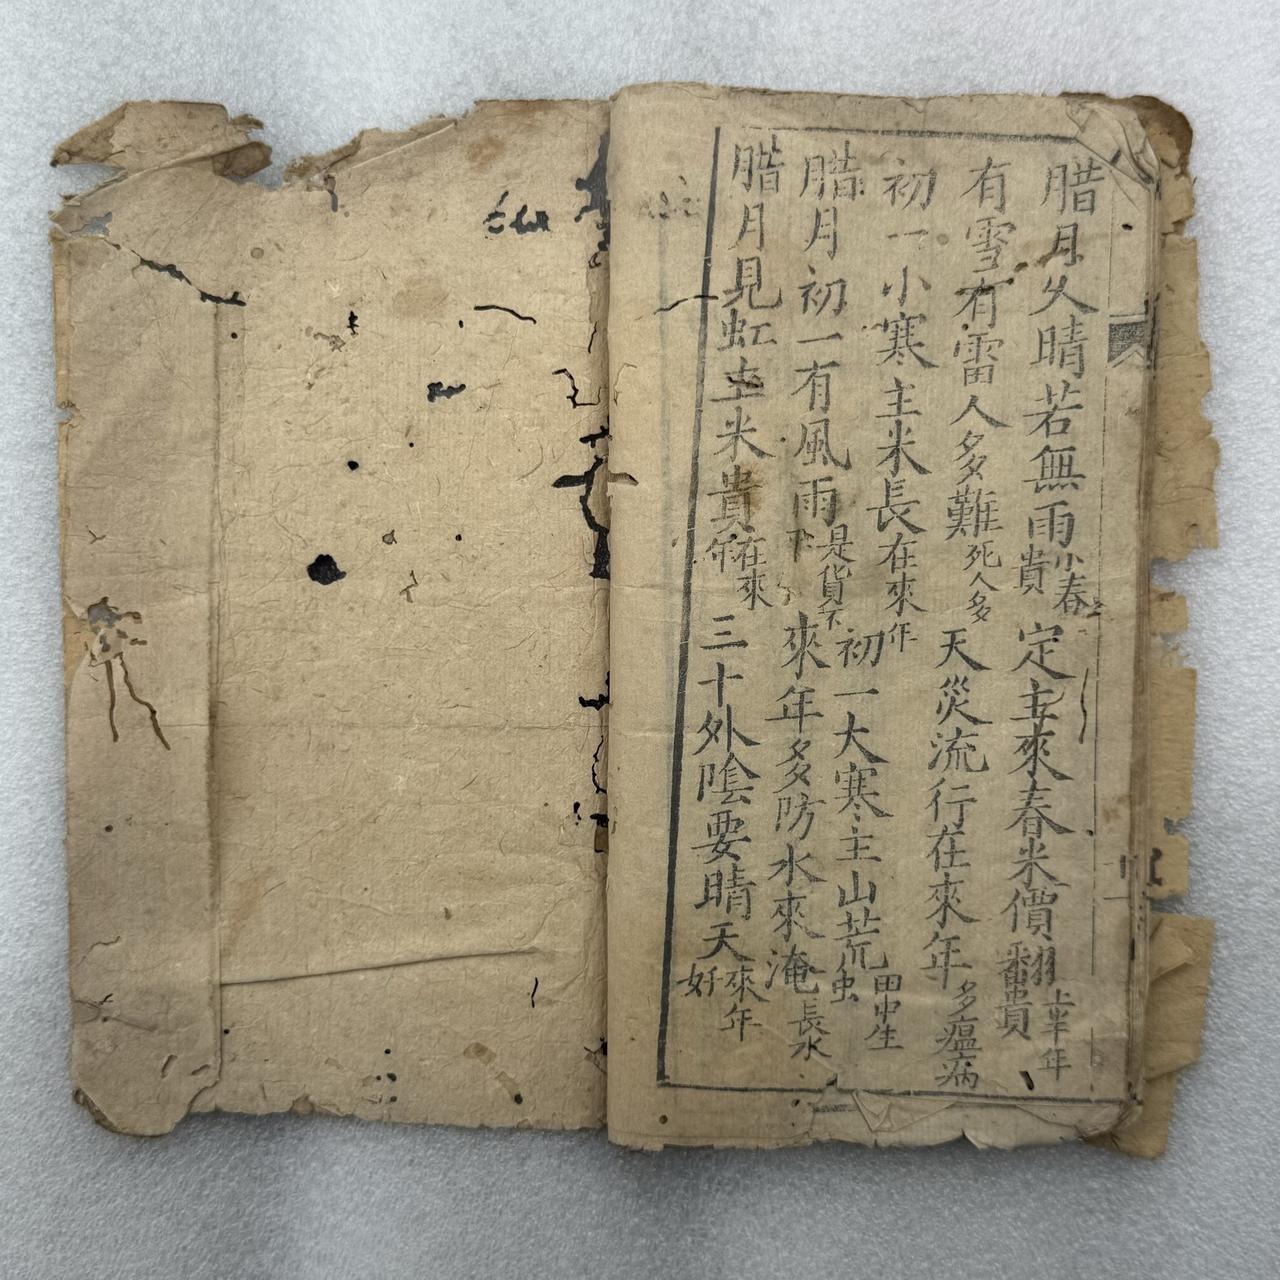 腊月久晴若無雨小春之貴定主來春米價翻上半年貴
有雪有雷人多難死人多天災流行在來年多瘟病
初一小寒主米長在來年初一大寒主山荒田中生虫
腊月初一有風雨是貨不下來年多防水來淹長水
腊月見虹主米貴在來年三十外陰要晴天來年好